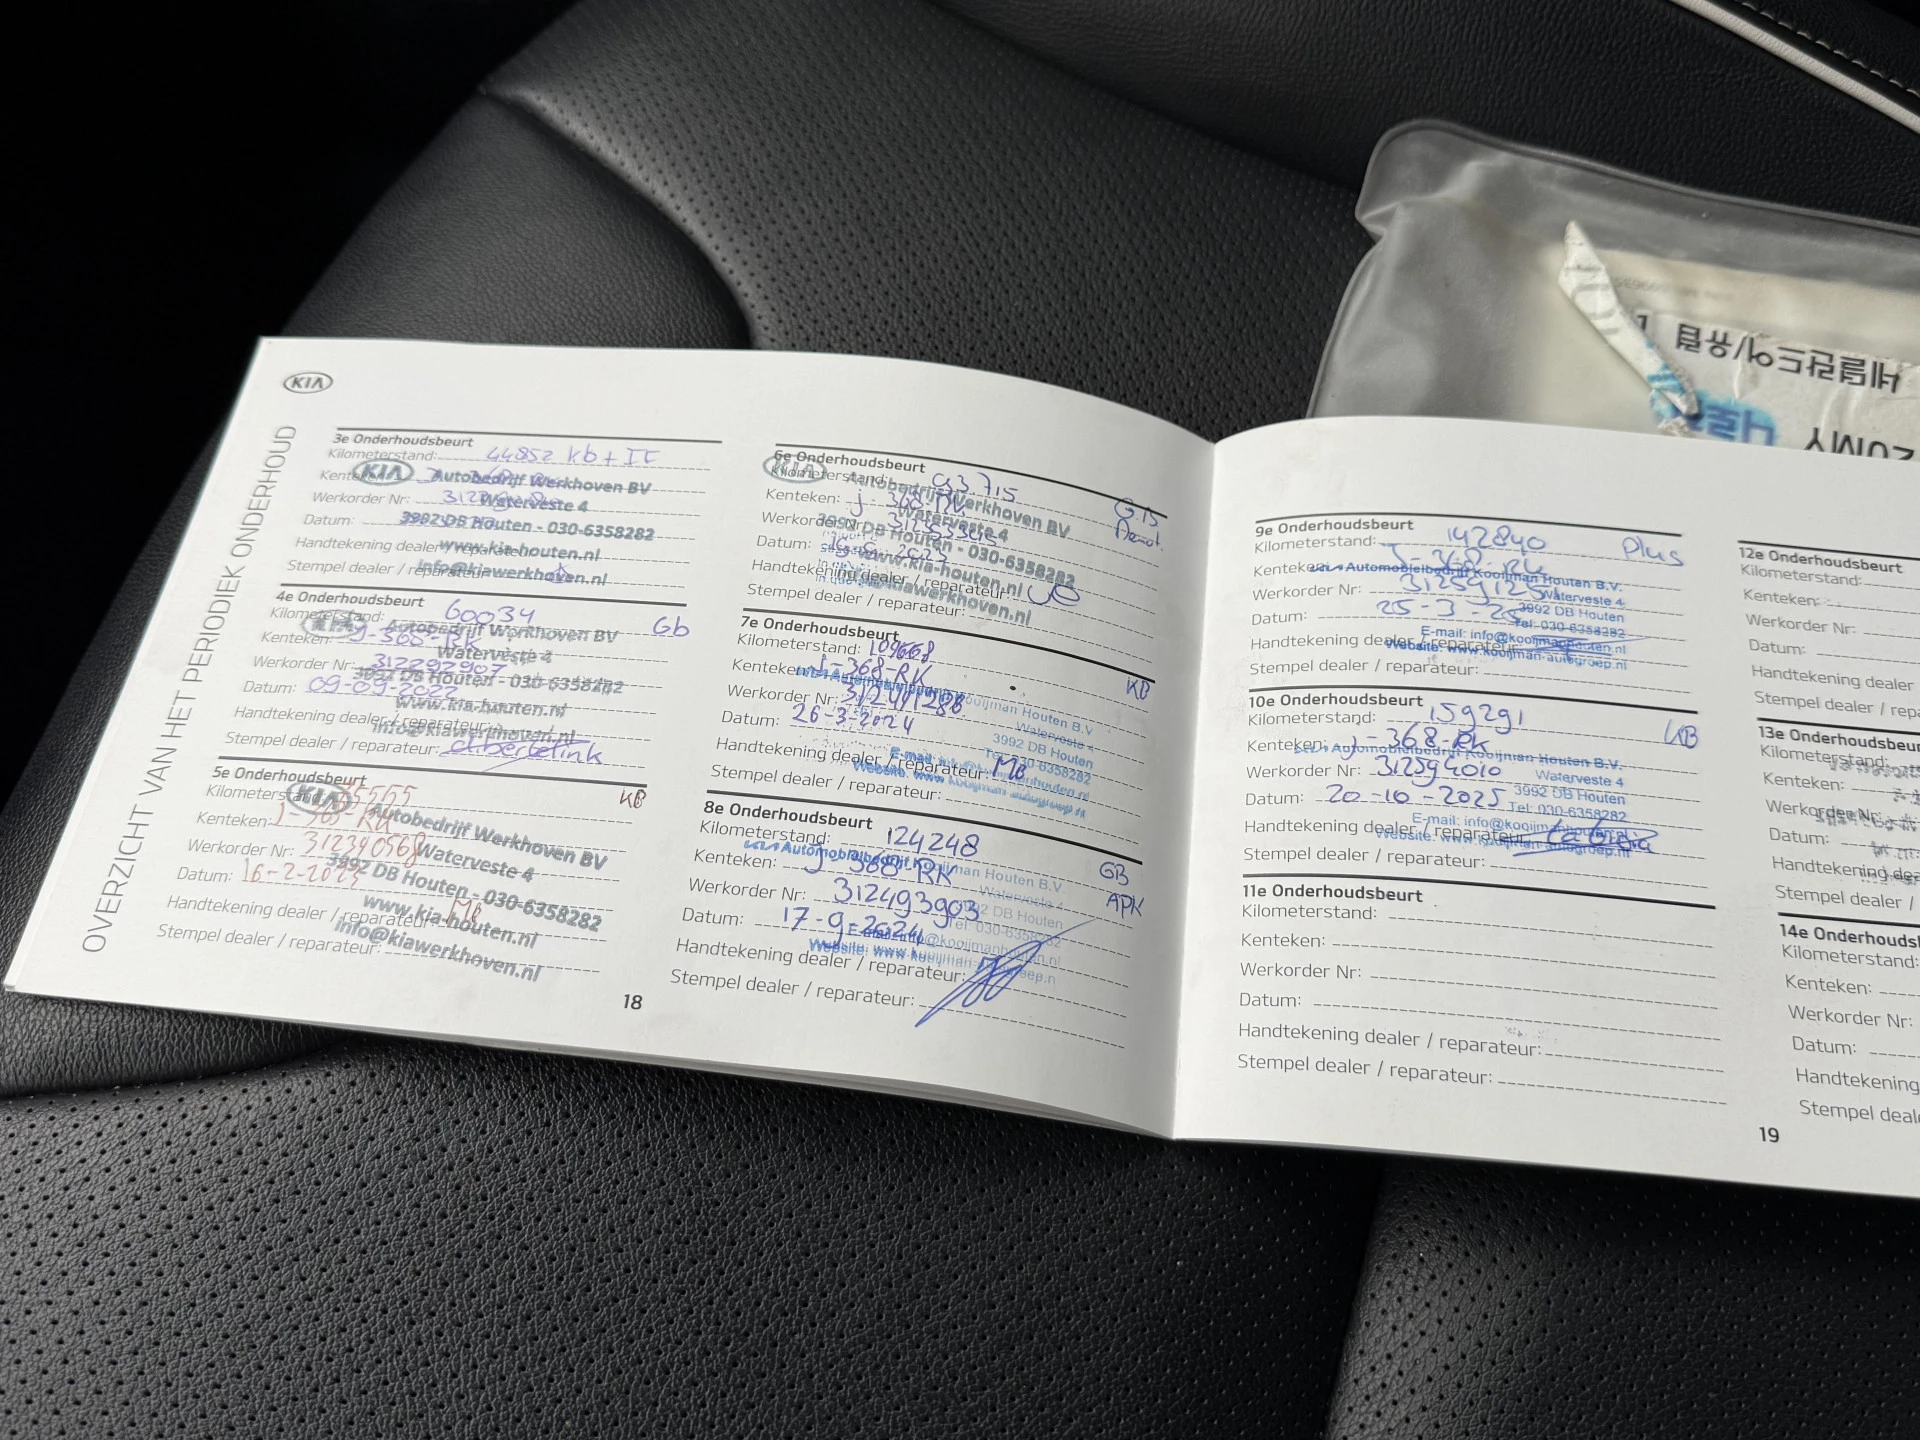 KIA
OVERZICHT VAN HET PERIODIEK ONDERHOUD
3e Onderhoudsbeurt
Kilometerstand: 44852 kb +
KIA Autobedrijf Werkhoven BV
Werkorder Nr: Waterveste 4
Datum: 3992 DB Houten - 030-6358282
Handtekening dealer / reparateur: www.kia-houten.nl
Stempel dealer / reparateur: info@kiawerkhoven.nl
4e Onderhoudsbeurt
Kilometerstand: 60034 Gb
KIA Autobedrijf Werkhoven BV
Kenteken: J-368-RK
Waterveste 4
Werkorder Nr: 312292907
3992 DB Houten - 030-6358282
Datum: 09-09-2022
www.kia-houten.nl
Handtekening dealer / reparateur:
info@kiawerkhoven.nl
Stempel dealer / reparateur:
5e Onderhoudsbeurt
Kilometerstand: KB
KIA Autobedrijf Werkhoven BV
Kenteken: J-368-RK
Waterveste 4
Werkorder Nr: 312390568
3992 DB Houten - 030-6358282
Datum: 16-2-2023
www.kia-houten.nl
Handtekening dealer / reparateur: MB
info@kiawerkhoven.nl
Stempel dealer / reparateur:
18
6e Onderhoudsbeurt
Kilometerstand: 93.715
KIA Autobedrijf Werkhoven BV
Kenteken: J-368-RK
Waterveste 4
Werkorder Nr:
3992 DB Houten - 030-6358282
Datum:
www.kia-houten.nl
Handtekening dealer / reparateur:
info@kiawerkhoven.nl
Stempel dealer / reparateur:
7e Onderhoudsbeurt
Kilometerstand: 109668
Kenteken: J-368-RK KB
Automobielbedrijf Kooijman Houten B.V.
Werkorder Nr: 312491288
Waterveste 4
Datum: 26-3-2024
3992 DB Houten
Tel: 030-6358282
Handtekening dealer / reparateur: MB
E-mail: info@kooijmanhouten.nl
Website: www.kooijman-autogroep.nl
Stempel dealer / reparateur:
8e Onderhoudsbeurt
Kilometerstand: 124248
KIA Automobielbedrijf Kooijman Houten B.V.
Kenteken: J 368 RK GB
Waterveste 4
Werkorder Nr: 312493903 APK
3992 DB Houten
Tel: 030-6358282
Datum: 17-9-2024
E-mail: info@kooijmanhouten.nl
Website: www.kooijman-autogroep.n
Handtekening dealer / reparateur:
Stempel dealer / reparateur:
9e Onderhoudsbeurt
Kilometerstand: 142840 Plus
Kenteken: J-368-RK
KIA Automobielbedrijf Kooijman Houten B.V.
Werkorder Nr: 312591255
Waterveste 4
Datum: 25-3-
3992 DB Houten
Tel: 030-6358282
E-mail: info@kooijmanhouten.nl
Handtekening dealer / reparateur:
Website: www.kooijman-autogroep.nl
Stempel dealer / reparateur:
10e Onderhoudsbeurt
Kilometerstand: 159291 KB
Kenteken: J-368-RK
KIA Automobielbedrijf Kooijman Houten B.V.
Werkorder Nr: 312594010
Waterveste 4
3992 DB Houten
Datum: 20-10-2025
Tel: 030-6358282
E-mail: info@kooijmanhouten.nl
Handtekening dealer / reparateur:
Website: www.kooijman-autogroep.nl
Stempel dealer / reparateur:
11e Onderhoudsbeurt
Kilometerstand:
Kenteken:
Werkorder Nr:
Datum:
Handtekening dealer / reparateur:
Stempel dealer / reparateur:
12e Onderhoudsbeurt
Kilometerstand:
Kenteken:
Werkorder Nr:
Datum:
Handtekening dealer
Stempel dealer / repa
13e Onderhoudsbeur
Kilometerstand:
Kenteken:
Werkorder Nr:
Datum:
Handtekening dea
Stempel dealer /
14e Onderhouds
Kilometerstand:
Kenteken:
Werkorder Nr:
Datum:
Handtekening
Stempel deal
19
네덜란드어/유럽